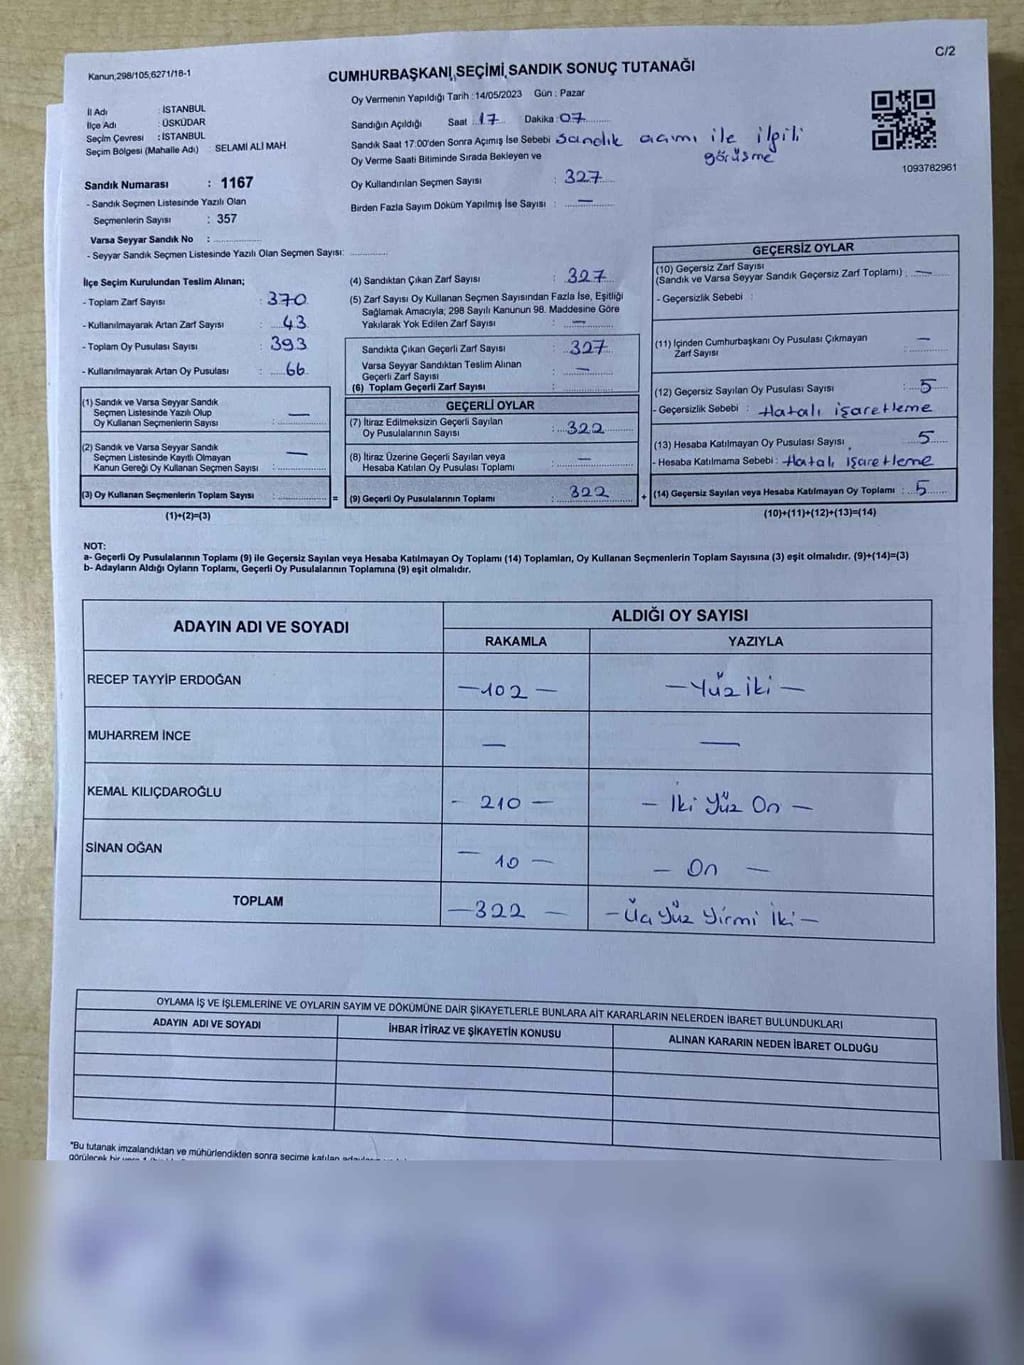 C/2
Kanun,298/105,6271/18-1
CUMHURBAŞKANI SEÇİMİ SANDIK SONUÇ TUTANAĞI
İl Adı : İSTANBUL
İlçe Adı : ÜSKÜDAR
Seçim Çevresi : İSTANBUL
Seçim Bölgesi (Mahalle Adı) : SELAMİ ALİ MAH
Sandık Numarası : 1167
- Sandık Seçmen Listesinde Yazılı Olan
Seçmenlerin Sayısı : 357
Varsa Seyyar Sandık No :
- Seyyar Sandık Seçmen Listesinde Yazılı Olan Seçmen Sayısı:
Oy Vermenin Yapıldığı Tarih : 14/05/2023 Gün : Pazar
Sandığın Açıldığı Saat : 17 Dakika : 07
Sandık Saat 17:00'den Sonra Açılmış İse Sebebi Sandık açımı ile ilgili
görüşme
Oy Verme Saati Bitiminde Sırada Bekleyen ve
Oy Kullandırılan Seçmen Sayısı : 327
Birden Fazla Sayım Döküm Yapılmış İse Sayısı : —
1093782961
İlçe Seçim Kurulundan Teslim Alınan;
- Toplam Zarf Sayısı : 370
- Kullanılmayarak Artan Zarf Sayısı : 43
- Toplam Oy Pusulası Sayısı : 393
- Kullanılmayarak Artan Oy Pusulası : 66
(1) Sandık ve Varsa Seyyar Sandık
Seçmen Listesinde Yazılı Olup
Oy Kullanan Seçmenlerin Sayısı : —
(2) Sandık ve Varsa Seyyar Sandık
Seçmen Listesinde Kayıtlı Olmayan
Kanun Gereği Oy Kullanan Seçmen Sayısı : —
(3) Oy Kullanan Seçmenlerin Toplam Sayısı :
(1)+(2)=(3)
(4) Sandıktan Çıkan Zarf Sayısı : 327
(5) Zarf Sayısı Oy Kullanan Seçmen Sayısından Fazla İse, Eşitliği
Sağlamak Amacıyla; 298 Sayılı Kanunun 98. Maddesine Göre
Yakılarak Yok Edilen Zarf Sayısı : —
Sandıkta Çıkan Geçerli Zarf Sayısı : 327
Varsa Seyyar Sandıktan Teslim Alınan
Geçerli Zarf Sayısı : —
(6) Toplam Geçerli Zarf Sayısı :
GEÇERLİ OYLAR
(7) İtiraz Edilmeksizin Geçerli Sayılan
Oy Pusulalarının Sayısı : 322
(8) İtiraz Üzerine Geçerli Sayılan veya
Hesaba Katılan Oy Pusulası Toplamı : —
= (9) Geçerli Oy Pusulalarının Toplamı : 322
GEÇERSİZ OYLAR
(10) Geçersiz Zarf Sayısı
(Sandık ve Varsa Seyyar Sandık Geçersiz Zarf Toplamı) : —
- Geçersizlik Sebebi :
(11) İçinden Cumhurbaşkanı Oy Pusulası Çıkmayan
Zarf Sayısı : —
(12) Geçersiz Sayılan Oy Pusulası Sayısı : 5
- Geçersizlik Sebebi : Hatalı işaretleme
(13) Hesaba Katılmayan Oy Pusulası Sayısı : 5
- Hesaba Katılmama Sebebi : Hatalı işaretleme
+ (14) Geçersiz Sayılan veya Hesaba Katılmayan Oy Toplamı : 5
(10)+(11)+(12)+(13)=(14)
NOT:
a- Geçerli Oy Pusulalarının Toplamı (9) ile Geçersiz Sayılan veya Hesaba Katılmayan Oy Toplamı (14) Toplamları, Oy Kullanan Seçmenlerin Toplam Sayısına (3) eşit olmalıdır. (9)+(14)=(3)
b- Adayların Aldığı Oyların Toplamı, Geçerli Oy Pusulalarının Toplamına (9) eşit olmalıdır.
ADAYIN ADI VE SOYADI ALDIĞI OY SAYISI
RAKAMLA YAZIYLA
RECEP TAYYİP ERDOĞAN —102— —Yüz iki—
MUHARREM İNCE — —
KEMAL KILIÇDAROĞLU - 210 — — İki Yüz On —
SİNAN OĞAN — 10 — — On —
TOPLAM —322 — —Üç Yüz Yirmi İki—
OYLAMA İŞ VE İŞLEMLERİNE VE OYLARIN SAYIM VE DÖKÜMÜNE DAİR ŞİKAYETLERLE BUNLARA AİT KARARLARIN NELERDEN İBARET BULUNDUKLARI
ADAYIN ADI VE SOYADI İHBAR İTİRAZ VE ŞİKAYETİN KONUSU ALINAN KARARIN NEDEN İBARET OLDUĞU
"Bu tutanak imzalandıktan ve mühürlendikten sonra seçime katılan